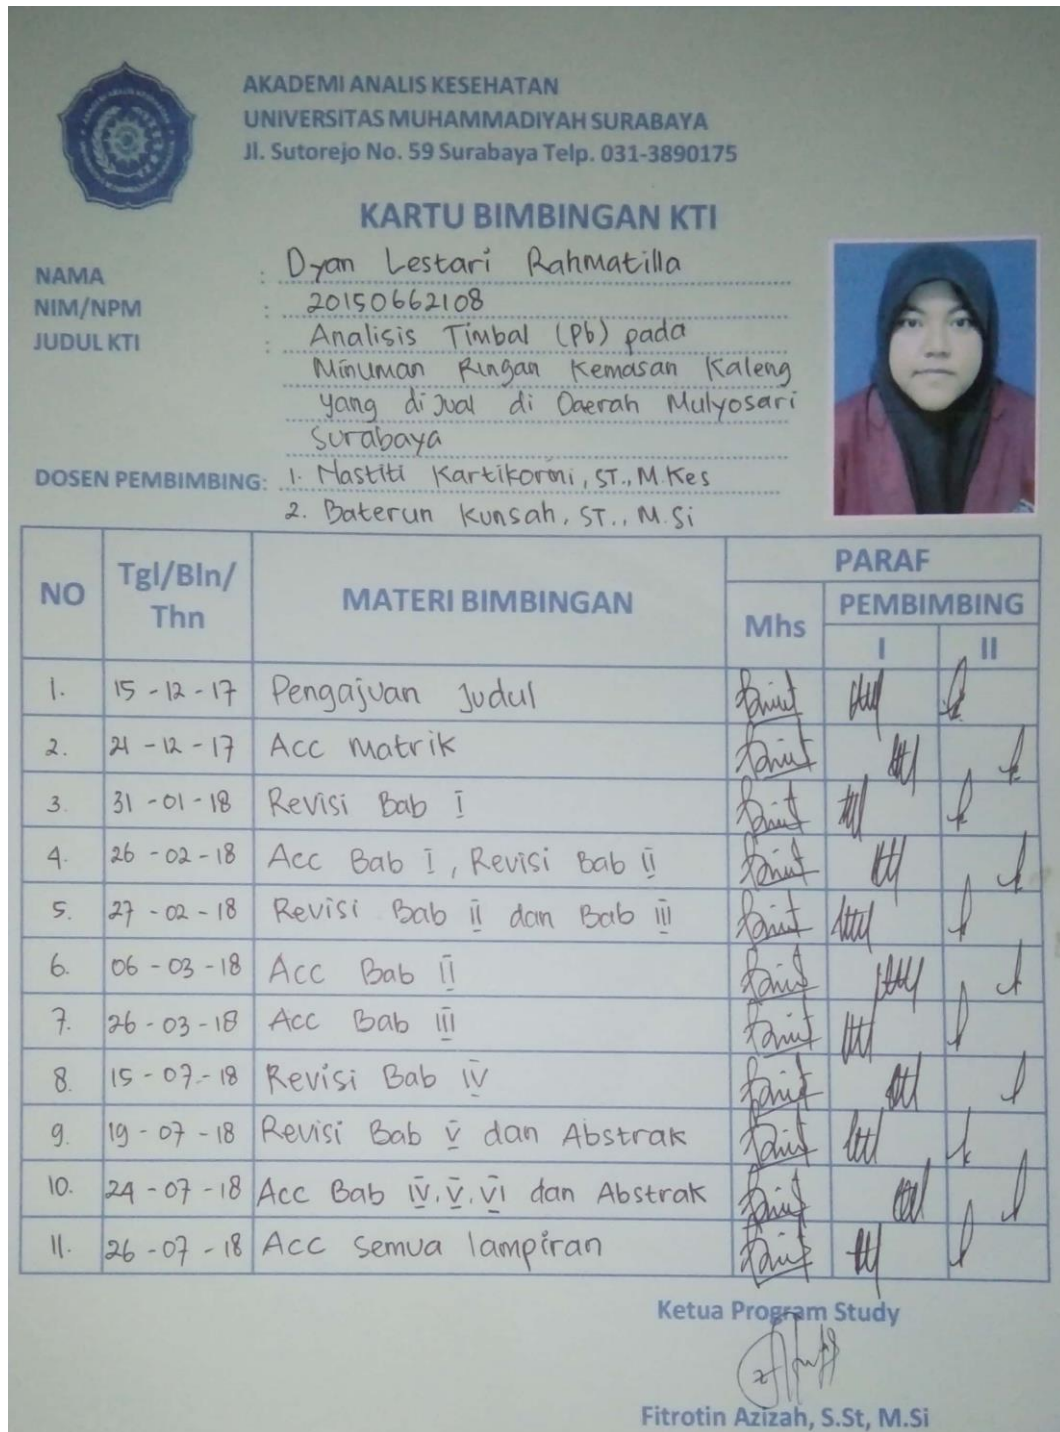 AKADEMI ANALIS KESEHATAN
UNIVERSITAS MUHAMMADIYAH SURABAYA
Jl. Sutorejo No. 59 Surabaya Telp. 031-3890175
KARTU BIMBINGAN KTI
NAMA : Dyan Lestari Rahmatilla
NIM/NPM : 20150662108
JUDUL KTI : Analisis Timbal (Pb) pada
Minuman Ringan Kemasan Kaleng
yang dijual di Daerah Mulyosari
Surabaya
DOSEN PEMBIMBING: 1. Nastiti Kartikorini, ST., M.Kes
2. Baterun Kunsah, ST., M.Si
NO Tgl/Bln/Thn MATERI BIMBINGAN PARAF
Mhs PEMBIMBING
I II
1. 15-12-17 Pengajuan Judul
2. 21-12-17 Acc matrik
3. 31-01-18 Revisi Bab I
4. 26-02-18 Acc Bab I, Revisi Bab II
5. 27-02-18 Revisi Bab II dan Bab III
6. 06-03-18 Acc Bab II
7. 26-03-18 Acc Bab III
8. 15-07-18 Revisi Bab IV
9. 19-07-18 Revisi Bab V dan Abstrak
10. 24-07-18 Acc Bab IV, V, VI dan Abstrak
11. 26-07-18 Acc semua lampiran
Ketua Program Study
Fitrotin Azizah, S.St, M.Si